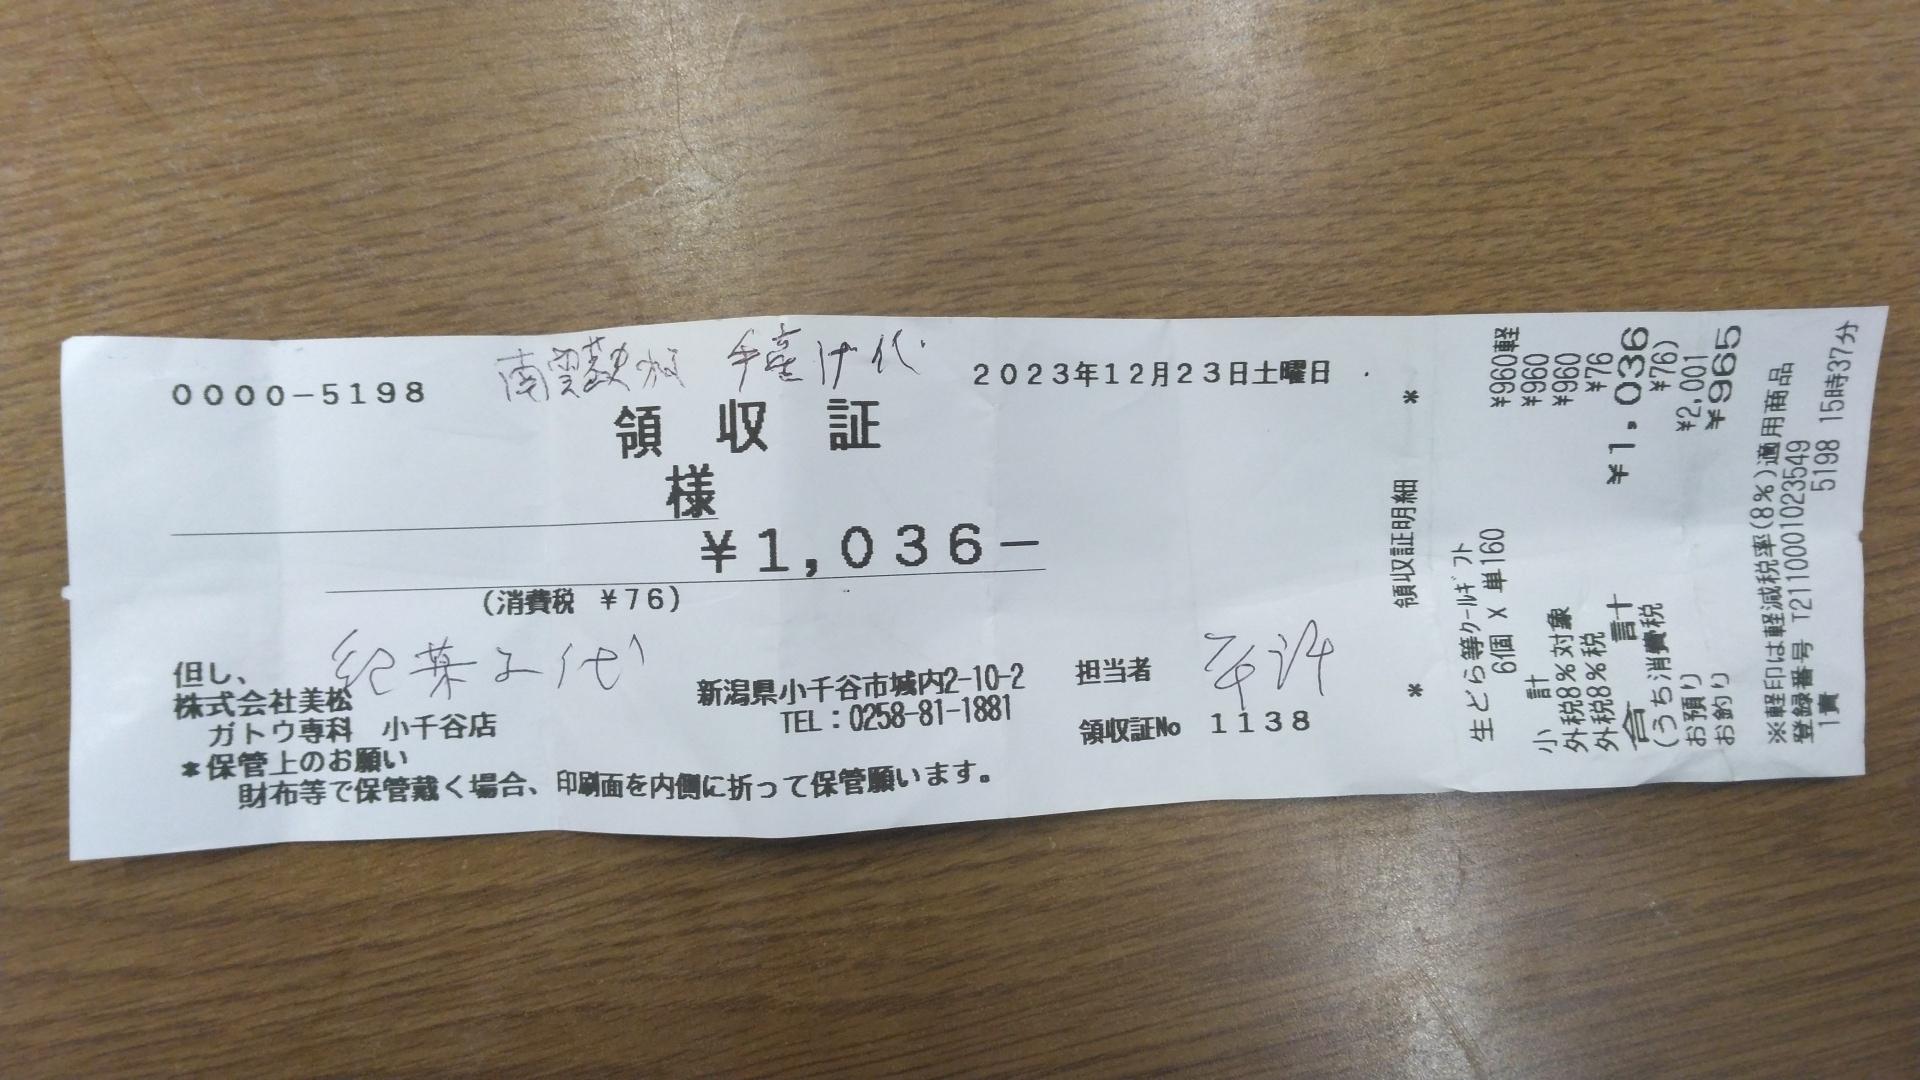 0000-5198
2023年12月23日土曜日
領収証
様
¥1,036-
(消費税 ¥76)
但し、 お菓子代
株式会社美松
ガトウ専科 小千谷店
新潟県小千谷市城内2-10-2
TEL:0258-81-1881
担当者
領収証No 1138
*保管上のお願い
財布等で保管戴く場合、印刷面を内側に折って保管願います。
* 領収証明細 *
生どら等クールギフト
6個 X 単160 ¥960軽
小 計 ¥960
外税8%対象 ¥960
外税8%税 ¥76
合 計 ¥1,036
(うち消費税 ¥76)
お預り ¥2,001
お釣り ¥965
※軽印は軽減税率(8%)適用商品
登録番号 T2110001023549
1責 5198 15時37分